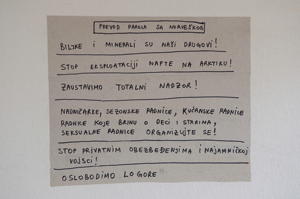 PREVOD PAROLA SA NORVEŠKOG
BILJKE I MINERALI SU NAŠI DRUGOVI!
STOP EKSPLOATACIJI NAFTE NA ARKTIKU!
ZAUSTAVIMO TOTALNI NADZOR!
NADNIČARKE, SEZONSKE RADNICE, KUĆANSKE RADNICE
RADNICE KOJE BRINU O DECI I STARIMA,
SEKSUALNE RADNICE ORGANIZUJTE SE!
STOP PRIVATNIM OBEZBEĐENJIMA I NAJAMNIČKOJ
VOJSCI!
OSLOBODIMO LOGORE